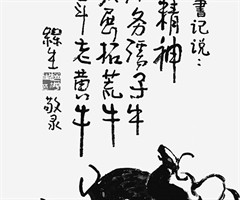 書记说：
精神
务孺子牛
展拓荒牛
斗老黄牛
敬录